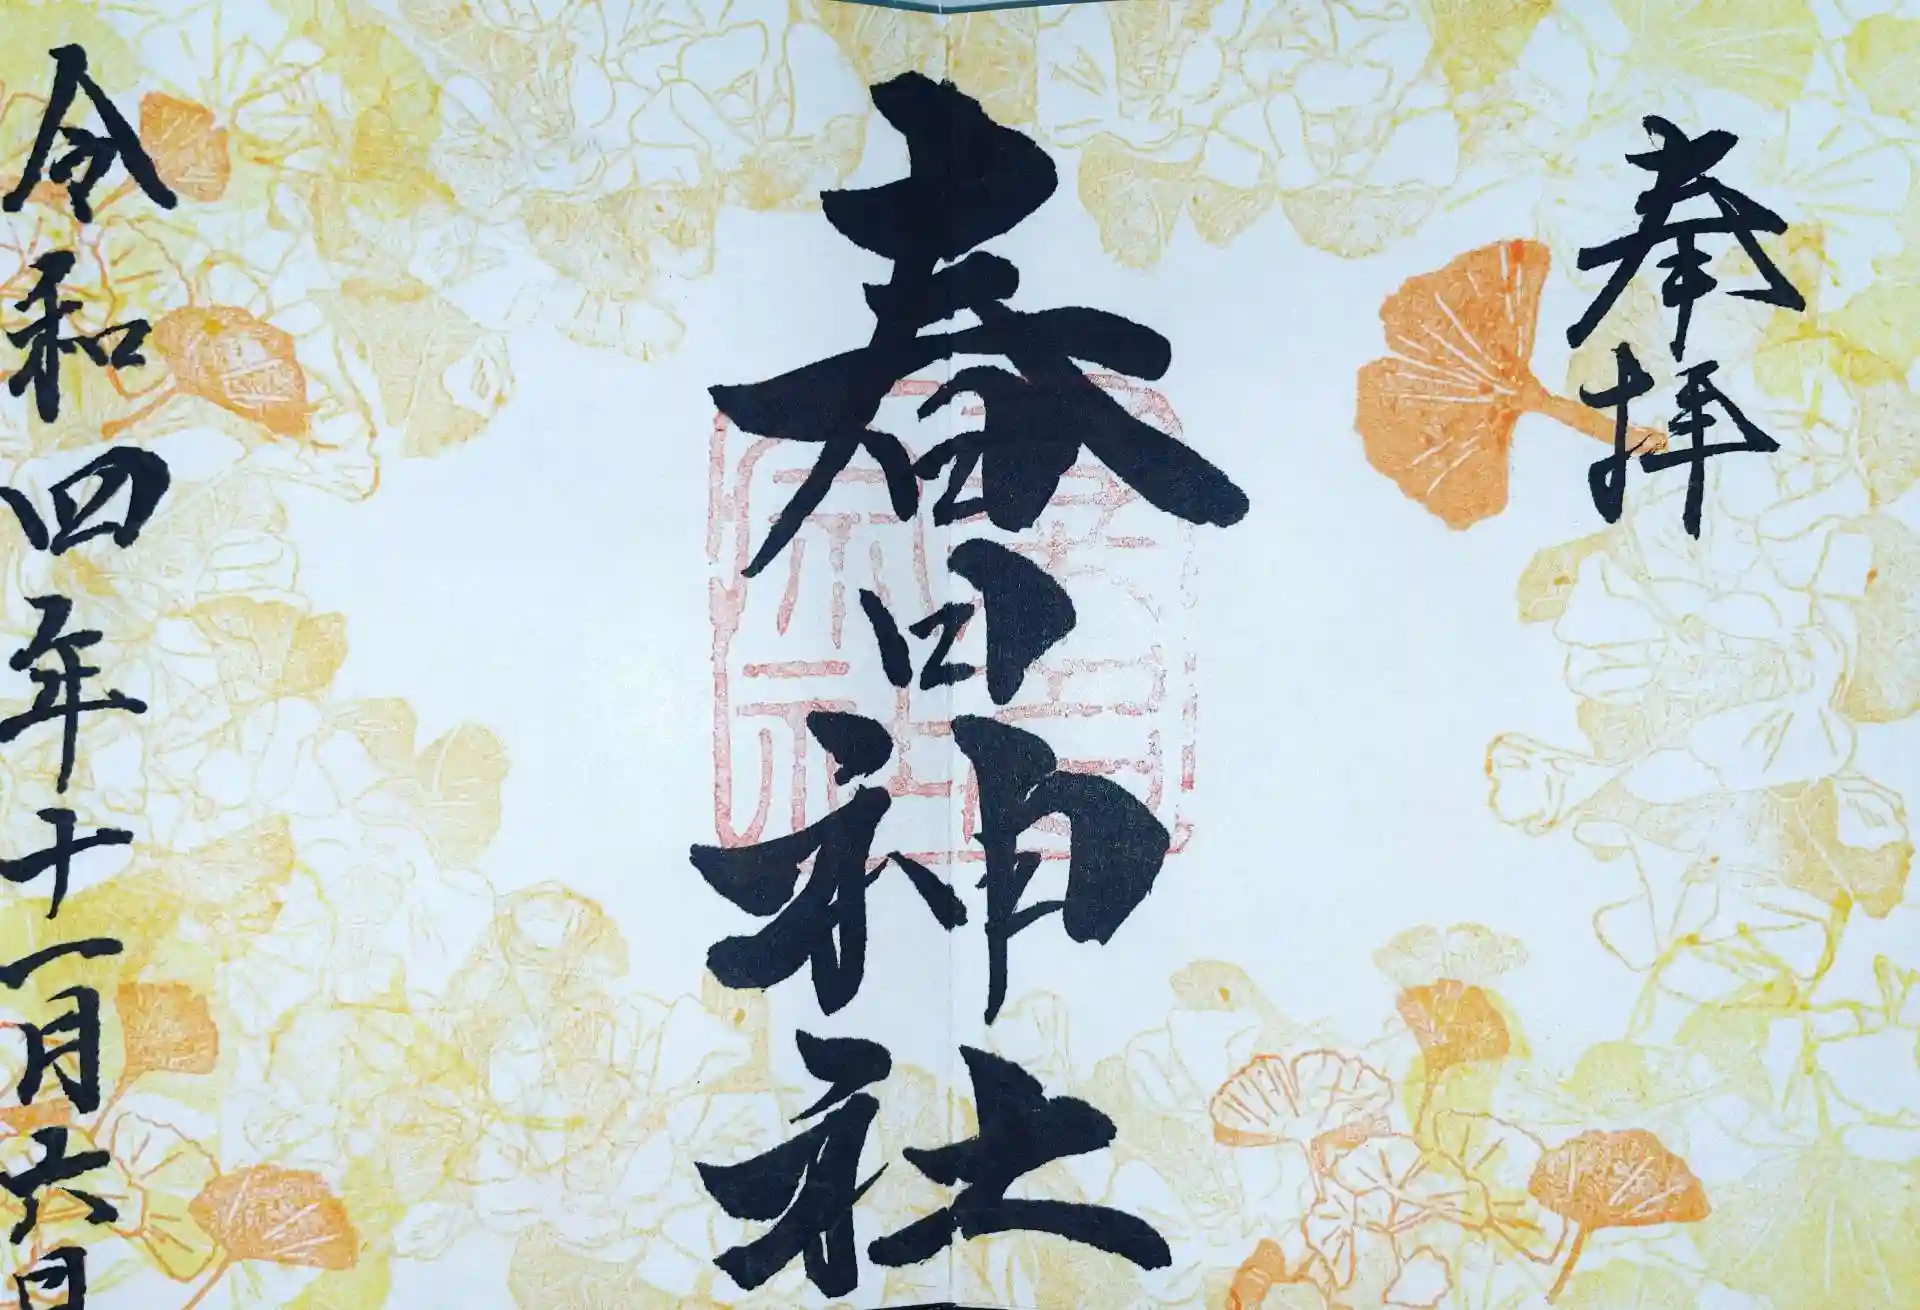 奉拝
春日神社
令和四年十一月六日